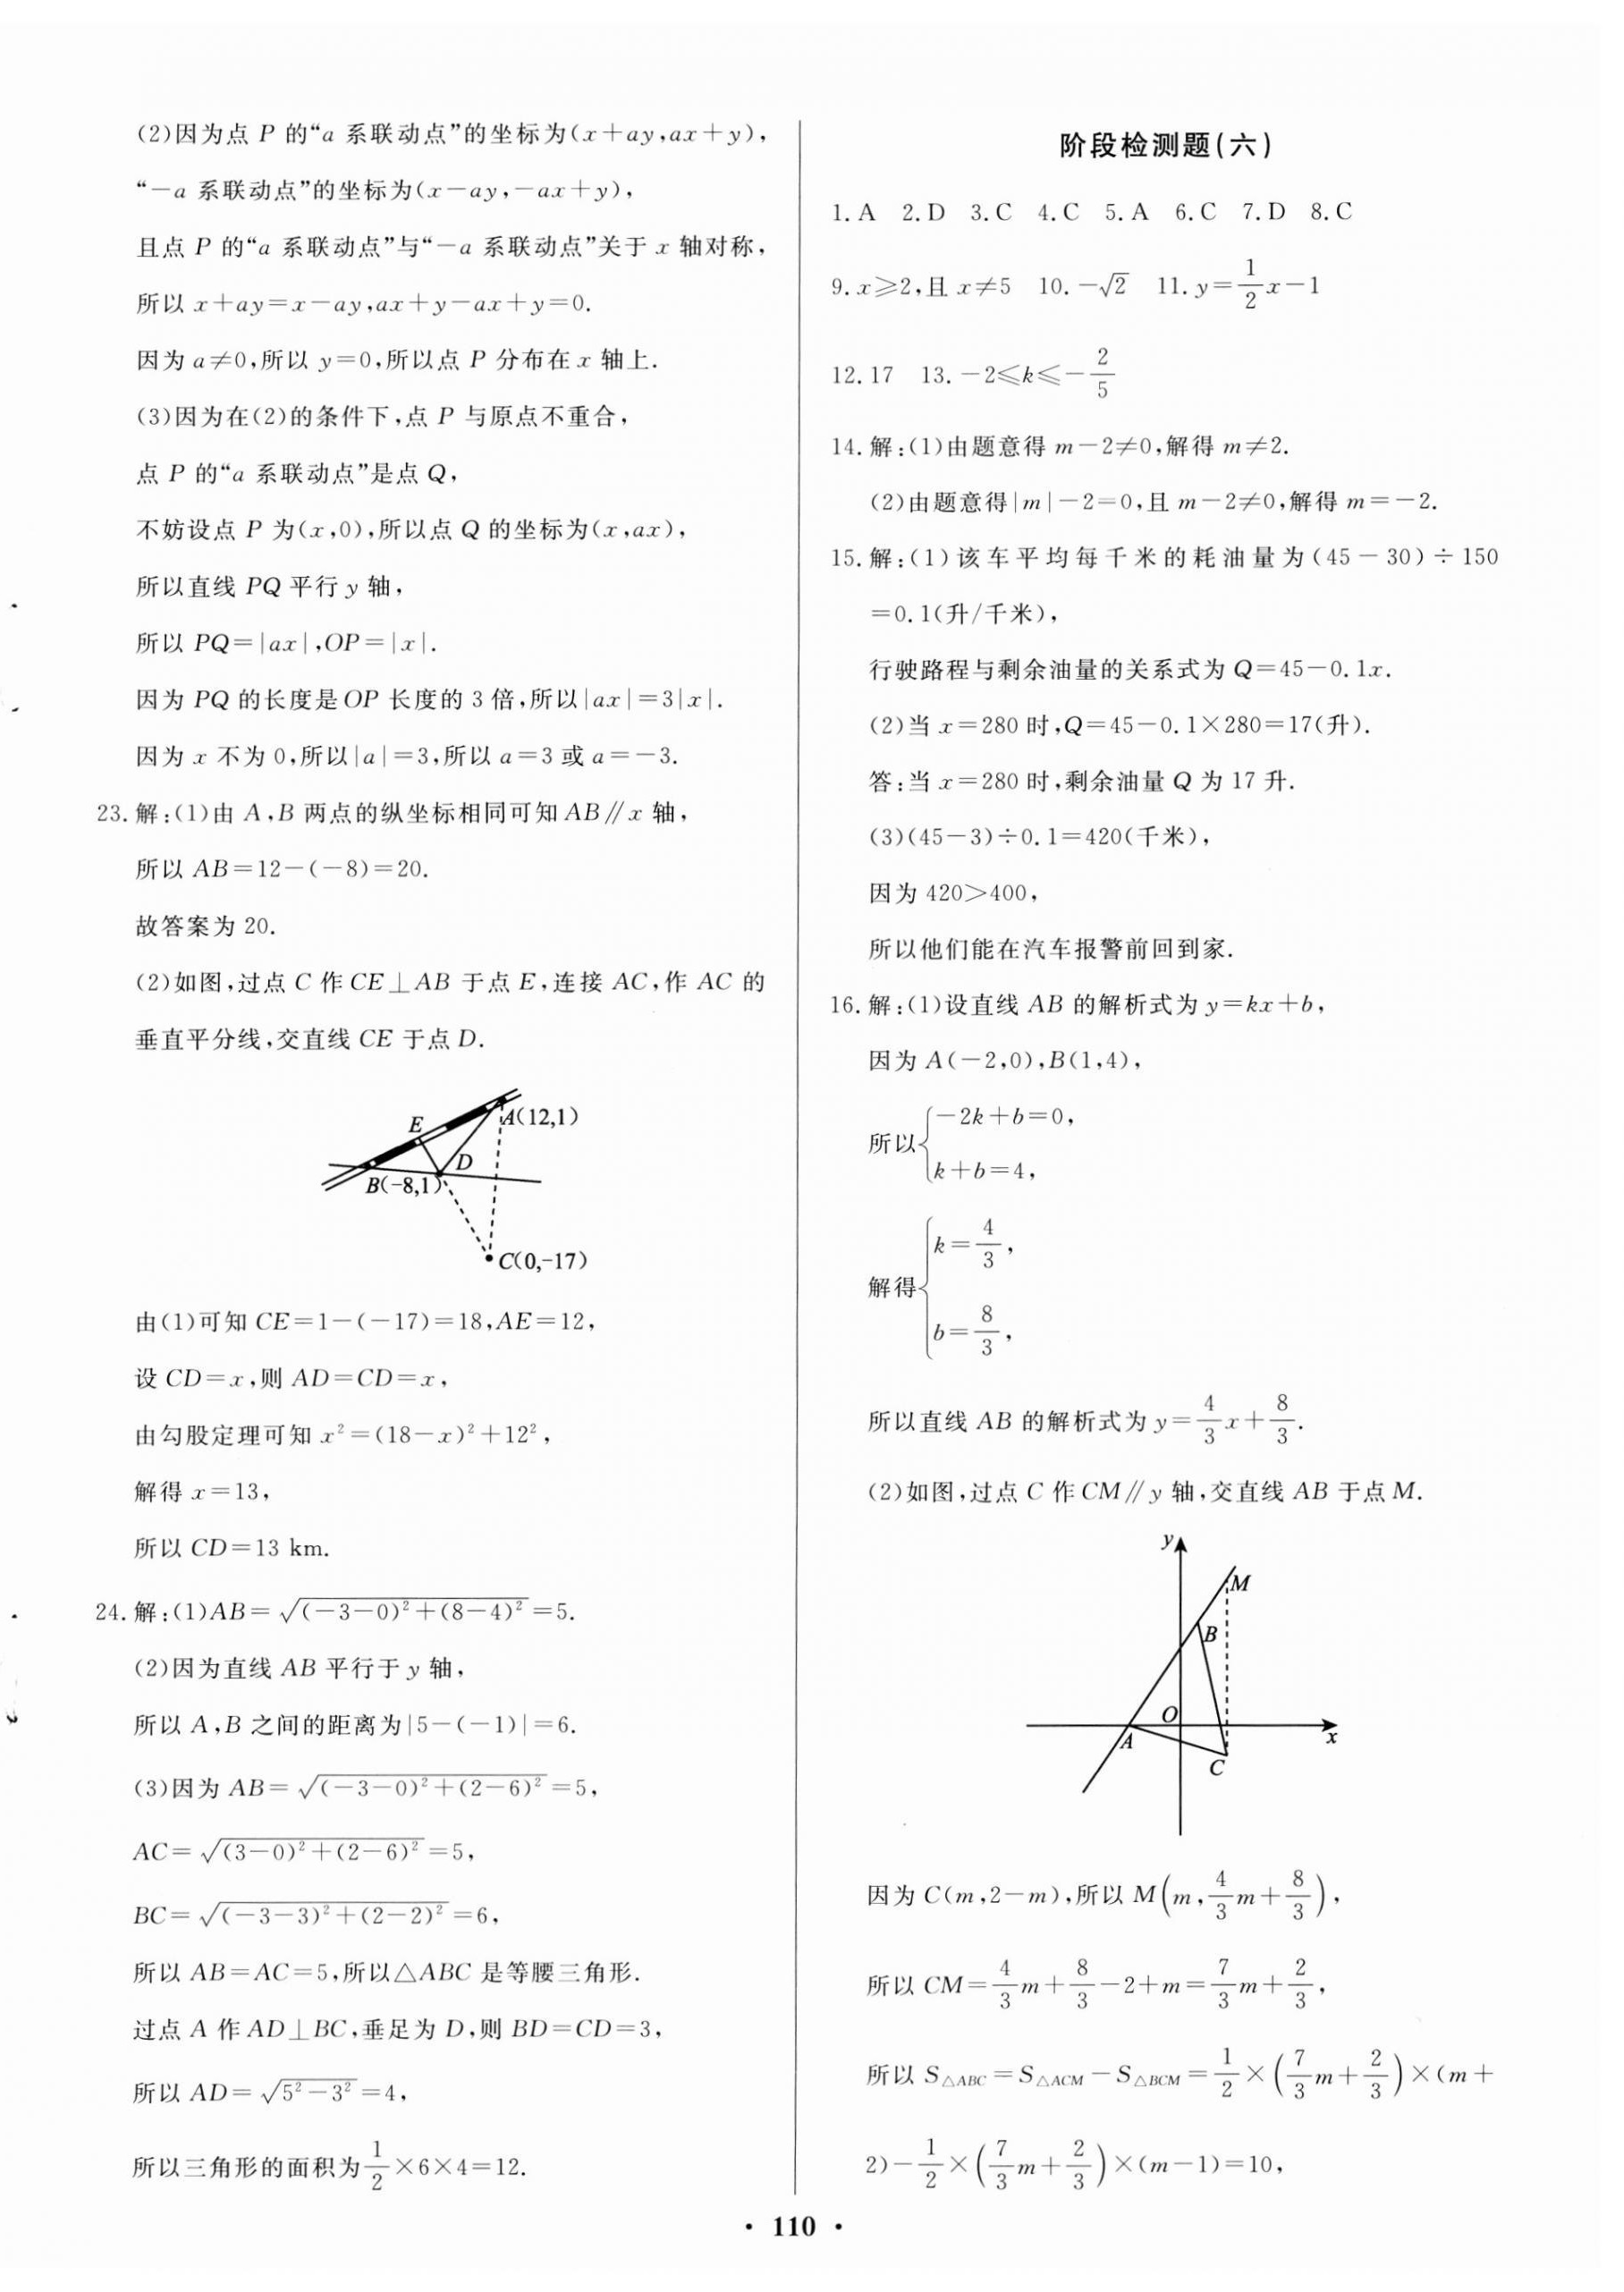 (2)因为点 P 的“a 系联动点”的坐标为(x+ay,ax+y),
“-a 系联动点”的坐标为(x-ay,-ax+y),
且点 P 的“a 系联动点”与“-a 系联动点”关于 x 轴对称,
所以 x+ay=x-ay,ax+y-ax+y=0.
因为 a≠0,所以 y=0,所以点 P 分布在 x 轴上.
(3)因为在(2)的条件下,点 P 与原点不重合,
点 P 的“a 系联动点”是点 Q,
不妨设点 P 为(x,0),所以点 Q 的坐标为(x,ax),
所以直线 PQ 平行 y 轴,
所以 PQ=|ax|,OP=|x|.
因为 PQ 的长度是 OP 长度的 3 倍,所以|ax|=3|x|.
因为 x 不为 0,所以|a|=3,所以 a=3 或 a=-3.
23.解:(1)由 A,B 两点的纵坐标相同可知 AB∥x 轴,
所以 AB=12-(-8)=20.
故答案为 20.
(2)如图,过点 C 作 CE⊥AB 于点 E,连接 AC,作 AC 的
垂直平分线,交直线 CE 于点 D.
E
A(12,1)
D
B(-8,1)
C(0,-17)
由(1)可知 CE=1-(-17)=18,AE=12,
设 CD=x,则 AD=CD=x,
由勾股定理可知 x²=(18-x)²+12²,
解得 x=13,
所以 CD=13 km.
24.解:(1)AB=√((-3-0)²+(8-4)²)=5.
(2)因为直线 AB 平行于 y 轴,
所以 A,B 之间的距离为|5-(-1)|=6.
(3)因为 AB=√((-3-0)²+(2-6)²)=5,
AC=√((3-0)²+(2-6)²)=5,
BC=√((-3-3)²+(2-2)²)=6,
所以 AB=AC=5,所以△ABC 是等腰三角形.
过点 A 作 AD⊥BC,垂足为 D,则 BD=CD=3,
所以 AD=√(5²-3²)=4,
所以三角形的面积为1/2×6×4=12.
阶段检测题(六)
1.A 2.D 3.C 4.C 5.A 6.C 7.D 8.C
9.x⩾2,且 x≠5 10.-√2 11.y=1/2x-1
12.17 13.-2⩽k⩽-2/5
14.解:(1)由题意得 m-2≠0,解得 m≠2.
(2)由题意得|m|-2=0,且 m-2≠0,解得 m=-2.
15.解:(1)该车平均每千米的耗油量为(45-30)÷150
=0.1(升/千米),
行驶路程与剩余油量的关系式为 Q=45-0.1x.
(2)当 x=280 时,Q=45-0.1×280=17(升).
答:当 x=280 时,剩余油量 Q 为 17 升.
(3)(45-3)÷0.1=420(千米),
因为 420>400,
所以他们能在汽车报警前回到家.
16.解:(1)设直线 AB 的解析式为 y=kx+b,
因为 A(-2,0),B(1,4),
所以{-2k+b=0,
k+b=4,
解得{k=4/3,
b=8/3,
所以直线 AB 的解析式为 y=4/3x+8/3.
(2)如图,过点 C 作 CM∥y 轴,交直线 AB 于点 M.
y
M
B
O
A
x
C
因为 C(m,2-m),所以 M(m,4/3m+8/3),
所以 CM=4/3m+8/3-2+m=7/3m+2/3,
所以 S△ABC=S△ACM-S△BCM=1/2×(7/3m+2/3)×(m+
2)-1/2×(7/3m+2/3)×(m-1)=10,
· 110 ·